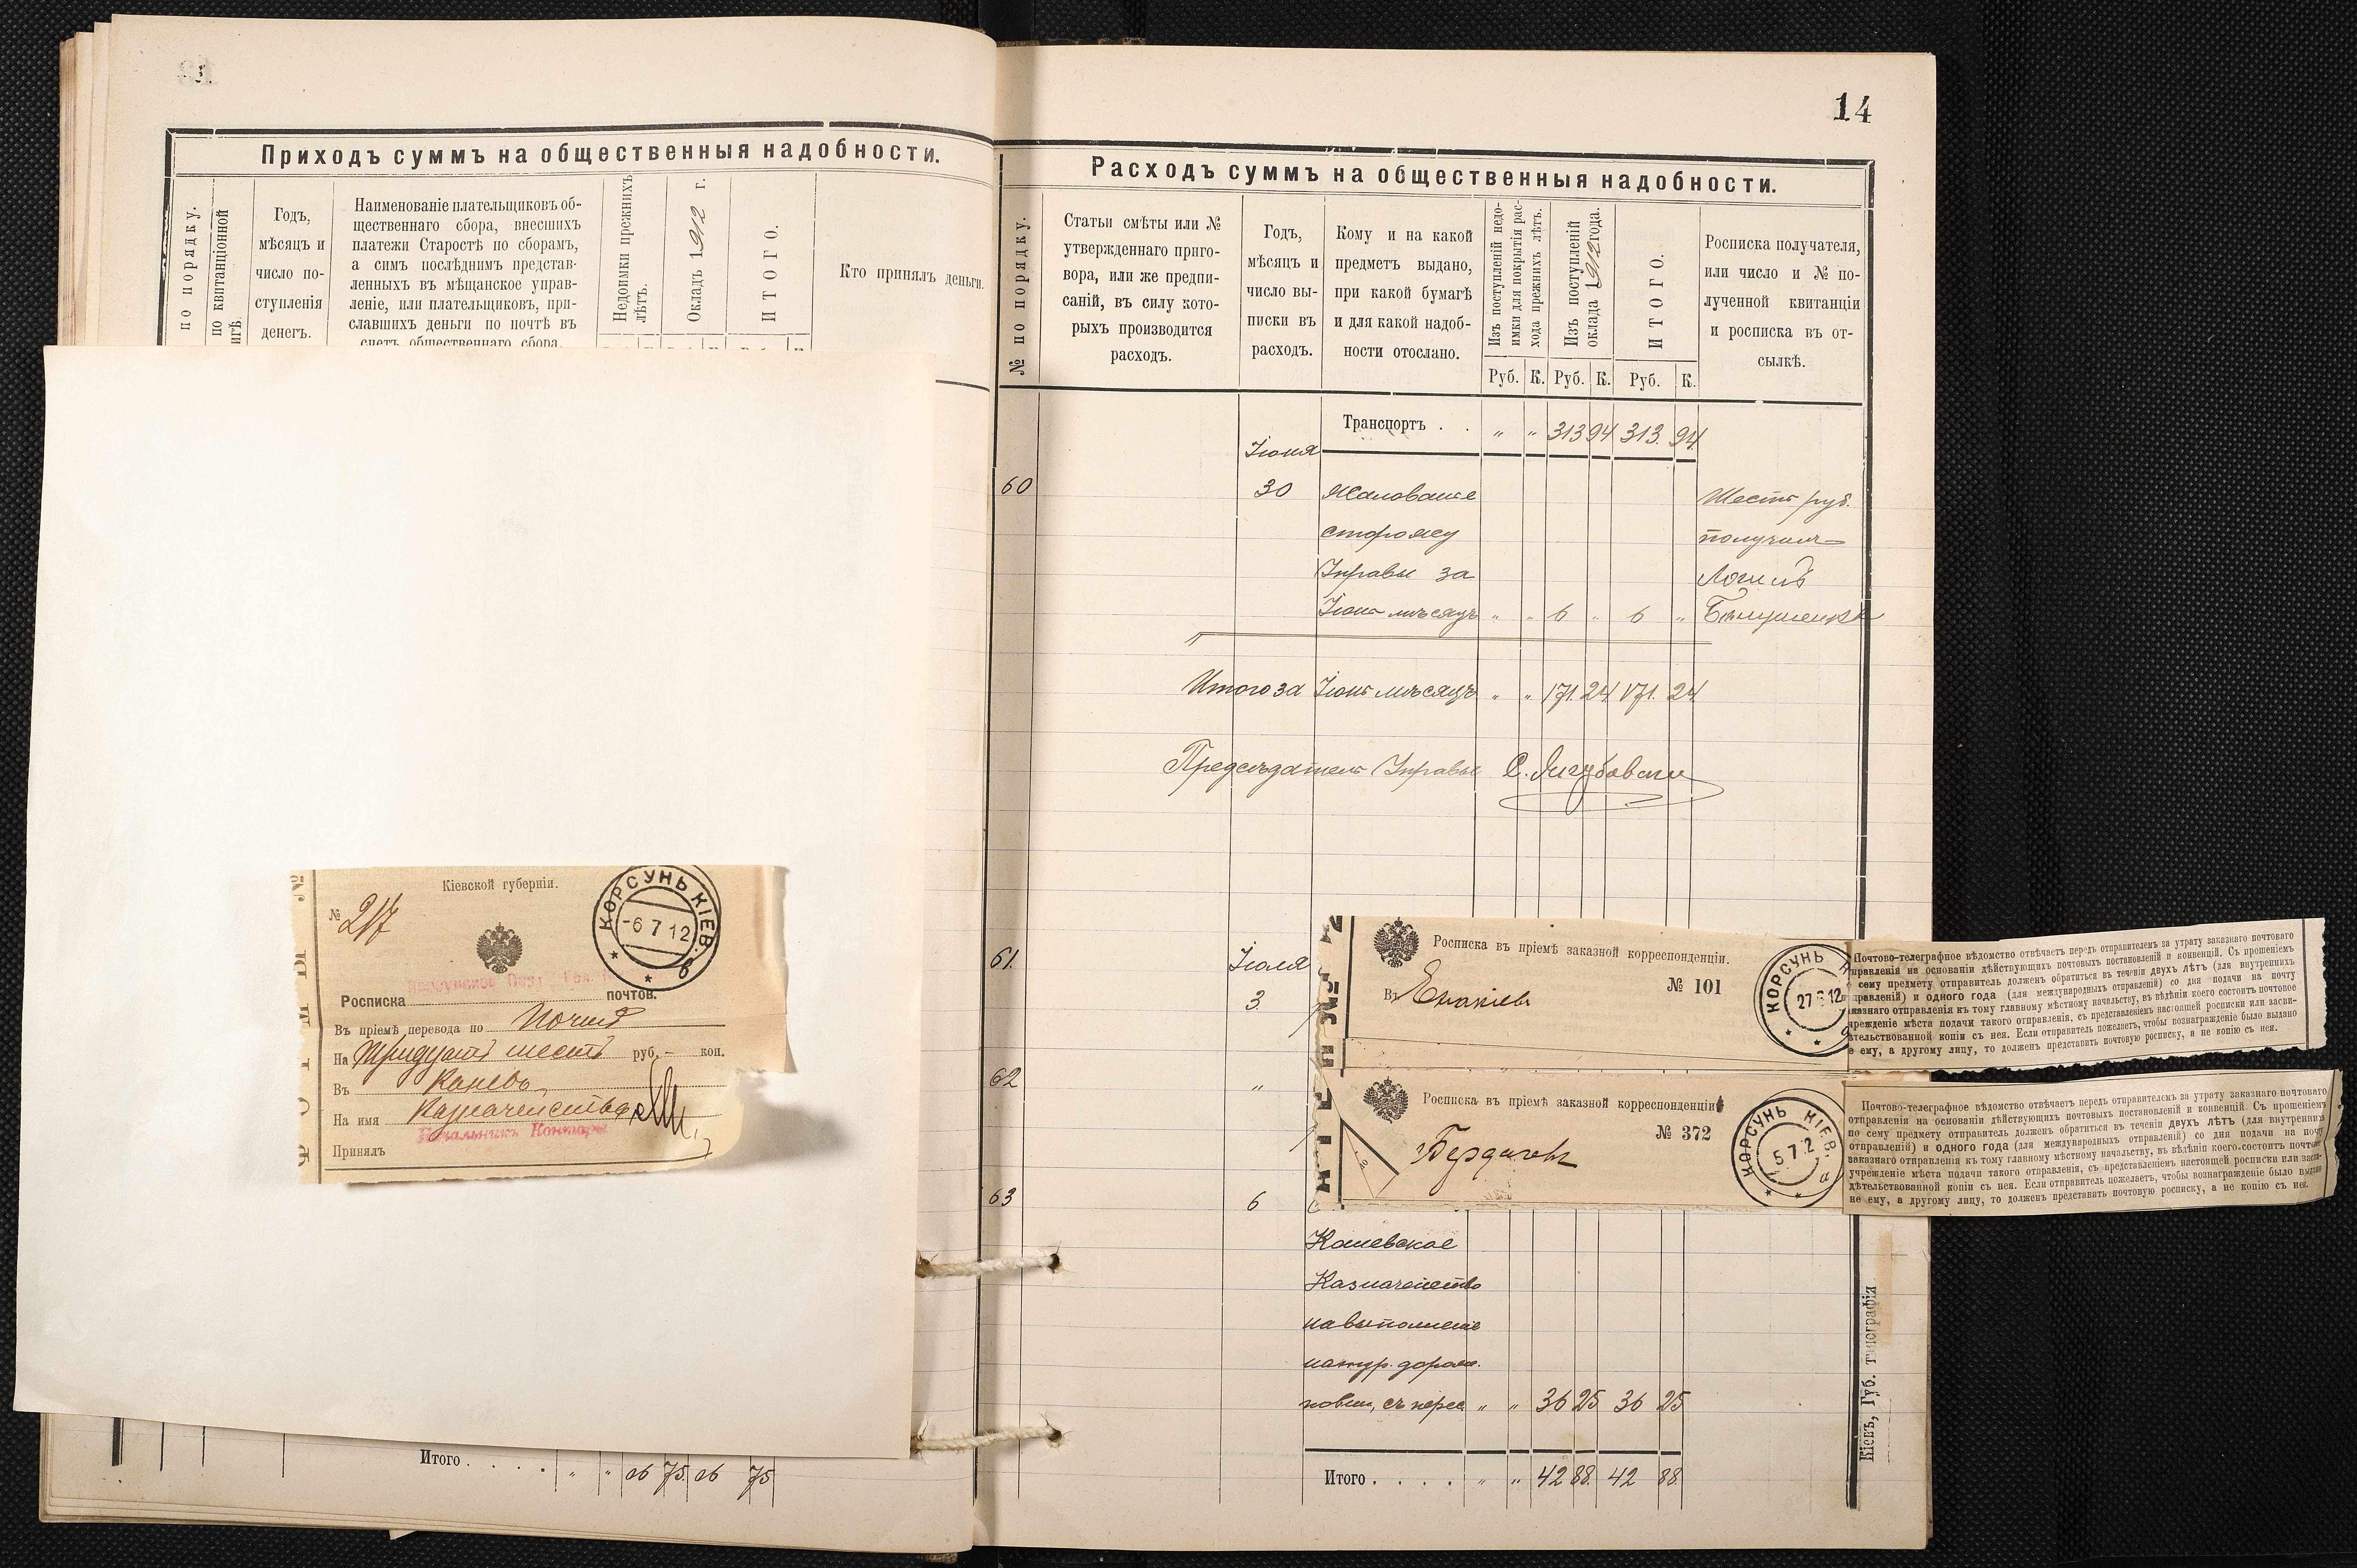 Приходъ суммъ на общественныя надобности.
по порядку.
по квитанціонной
игѣ.
Годъ,
мѣсяцъ и
число по-
ступленія
денегъ.
Наименованіе плательщиковъ об-
щественнаго сбора, внесшихъ
платежи Старостѣ по сборамъ,
а симъ послѣднимъ представ-
ленныхъ въ мѣщанское управ-
леніе, или плательщиковъ, при-
славшихъ деньги по почтѣ въ
счетъ общественнаго сбора.
Недоимки прежнихъ
лѣтъ.
Окладъ 1912 г.
ИТОГО.
Кто принялъ деньги.
Кіевской губерніи.
№ 217
КОРСУНЬ КІЕВ.
-6 7 12
б
Росписка почтов.
Въ пріемѣ перевода по Почтѣ
На Тридцать шесть руб. - коп.
Въ Каневъ
На имя Казначейства
Начальникъ Конторы
Принялъ
Итого . . . . „ „ 26 75 26 75
14
Расходъ суммъ на общественныя надобности.
№ по порядку.
Статьи смѣты или №
утвержденнаго приго-
вора, или же предпи-
саній, въ силу кото-
рыхъ производится
расходъ.
Годъ,
мѣсяцъ и
число вы-
писки въ
расходъ.
Кому и на какой
предметъ выдано,
при какой бумагѣ
и для какой надоб-
ности отослано.
Изъ поступленій недо-
имки для покрытія рас-
хода прежнихъ лѣтъ.
Изъ поступленій
оклада 1912 года.
ИТОГО.
Руб. К. Руб. К. Руб. К.
Росписка получателя,
или число и № по-
лученной квитанціи
и росписка въ от-
сылкѣ.
Транспортъ . . „ „ 313 94 313. 94
Іюня
60 30 Жалованіе Шесть руб.
сторожу получилъ
Управы за
Іюнь мѣсяцъ „ „ 6 „ 6 „
Итого за Іюнь мѣсяцъ „ „ 171. 24 171. 24
Предсѣдатель Управы
61. Іюля
3.
Росписка въ пріемѣ заказной корреспонденціи.
№ 101
Въ
КОРСУНЬ
27 6 12
Почтово-телеграфное вѣдомство отвѣчаетъ передъ отправителемъ за утрату заказнаго почтоваго
правленія на основаніи дѣйствующихъ почтовыхъ постановленій и конвенцій. Съ прошеніемъ
сему предмету отправитель долженъ обратиться въ теченіи двухъ лѣтъ (для внутреннихъ
правленій) и одного года (для международныхъ отправленій) со дня подачи на почту
казнаго отправленія къ тому главному мѣстному начальству, въ вѣдѣніи коего состоитъ почтовое
чрежденіе мѣста подачи такого отправленія, съ представленіемъ настоящей росписки или засви-
ѣтельствованной копіи съ нея. Если отправитель пожелаетъ, чтобы вознагражденіе было выдано
е ему, а другому лицу, то долженъ представить почтовую росписку, а не копію съ нея.
62 „
Росписка въ пріемѣ заказной корреспонденціи
№ 372
Бердичевъ
КОРСУНЬ КІЕВ.
5 7 12
а
Почтово-телеграфное вѣдомство отвѣчаетъ передъ отправителемъ за утрату заказнаго почтоваго
отправленія на основаніи дѣйствующихъ почтовыхъ постановленій и конвенцій. Съ прошеніемъ
по сему предмету отправитель долженъ обратиться въ теченіи двухъ лѣтъ (для внутреннихъ
отправленій) и одного года (для международныхъ отправленій) со дня подачи на почту
заказнаго отправленія къ тому главному мѣстному начальству, въ вѣдѣніи коего состоитъ почтовое
учрежденіе мѣста подачи такого отправленія, съ представленіемъ настоящей росписки или засви-
дѣтельствованной копіи съ нея. Если отправитель пожелаетъ, чтобы вознагражденіе было выдано
не ему, а другому лицу, то долженъ представить почтовую росписку, а не копію съ нея.
63 6
Каневское
Казначейство
на выполненіе
натур. дорож.
повин., съ перес „ „ 36 25 36 25
Итого . . . . „ „ 42 88. 42 88.
Кіевъ, Губ. типографія